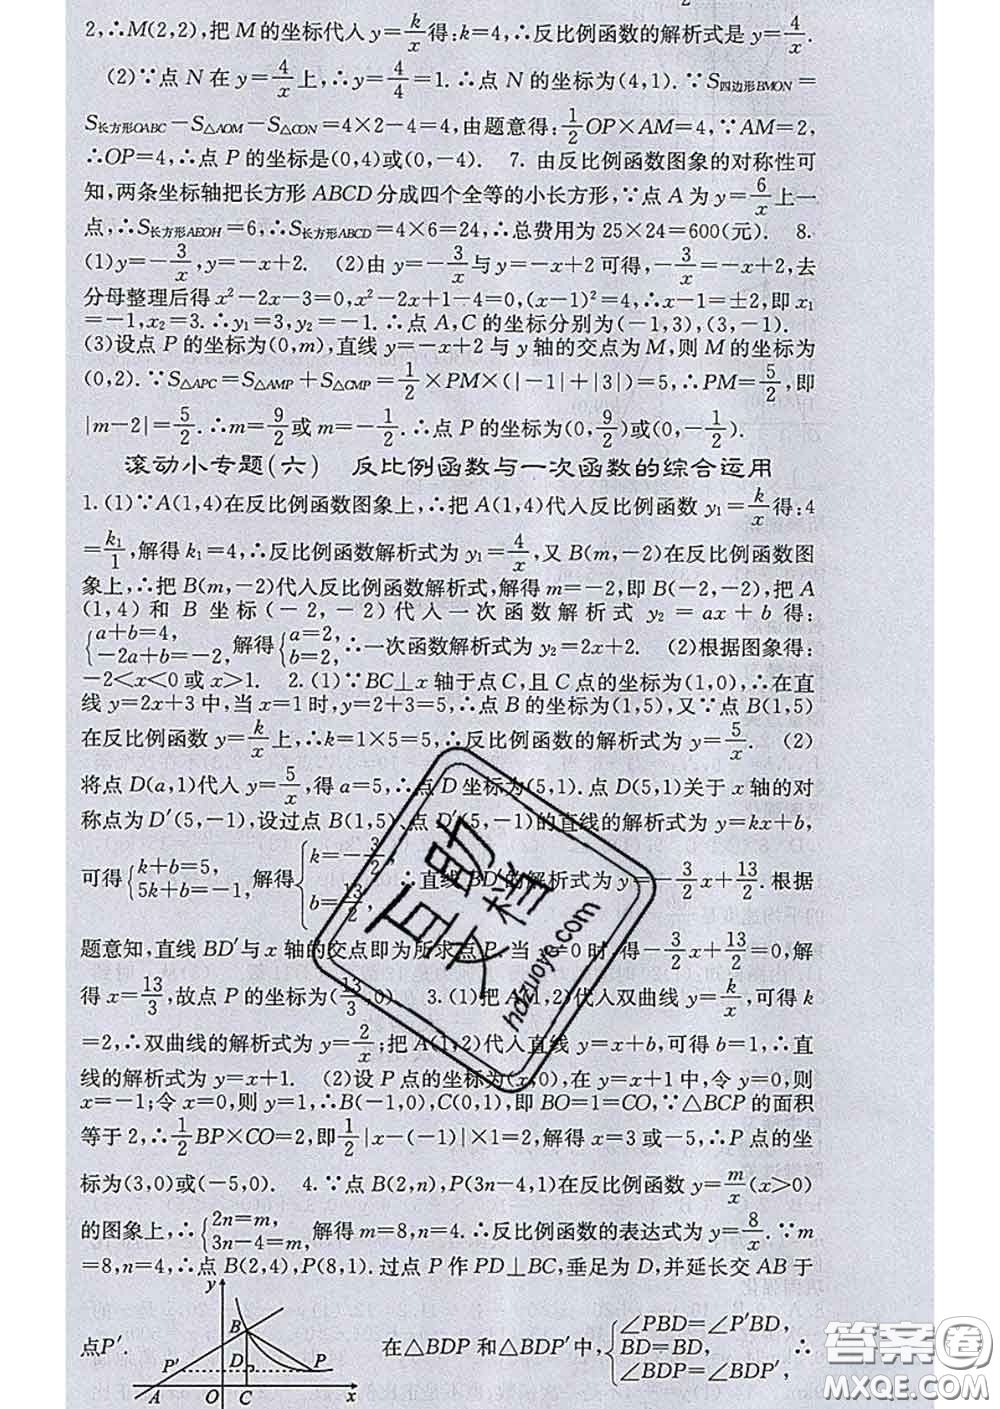 2,∴M(2,2),把 M 的坐标代入 y=k/x 得:k=4,∴反比例函数的解析式是 y=4/x.
(2)∵点 N 在 y=4/x 上,∴y=4/4=1.∴点 N 的坐标为(4,1).∵S四边形BMON=
S长方形OABC−S△AOM−S△CON=4×2−4=4,由题意得:1/2 OP×AM=4,∵AM=2,
∴OP=4,∴点 P 的坐标是(0,4)或(0,−4). 7. 由反比例函数图象的对称性可
知,两条坐标轴把长方形 ABCD 分成四个全等的小长方形,∵点 A 为 y=6/x 上一
点,∴S长方形AEOH=6,∴S长方形ABCD=4×6=24,∴总费用为 25×24=600(元). 8.
(1)y=−3/x,y=−x+2. (2)由 y=−3/x 与 y=−x+2 可得,−3/x=−x+2,去
分母整理后得 x²−2x−3=0,x²−2x+1−4=0,(x−1)²=4,∴x−1=±2,即 x₁
=−1,x₂=3.∴y₁=3,y₂=−1.∴点 A,C 的坐标分别为(−1,3),(3,−1).
(3)设点 P 的坐标为(0,m),直线 y=−x+2 与 y 轴的交点为 M,则 M 的坐标为
(0,2).∵S△APC=S△AMP+S△CMP=1/2×PM×(|−1|+|3|)=5,∴PM=5/2,即
|m−2|=5/2.∴m=9/2或 m=−1/2.∴点 P 的坐标为(0,9/2)或(0,−1/2).
滚动小专题(六) 反比例函数与一次函数的综合运用
1.(1)∵A(1,4)在反比例函数图象上,∴把 A(1,4)代入反比例函数 y₁=k/x 得:4
=k₁/1,解得 k₁=4,∴反比例函数解析式为 y₁=4/x,又 B(m,−2)在反比例函数图
象上,∴把 B(m,−2)代入反比例函数解析式,解得 m=−2,即 B(−2,−2),把 A
(1,4)和 B 坐标(−2,−2)代入一次函数解析式 y₂=ax+b 得:
{a+b=4, −2a+b=−2, 解得{a=2, b=2, ∴一次函数解析式为 y₂=2x+2. (2)根据图象得:
−2<x<0 或 x>1. 2.(1)∵BC⊥x 轴于点 C,且 C 点的坐标为(1,0),∴在直
线 y=2x+3 中,当 x=1 时,y=2+3=5,∴点 B 的坐标为(1,5),又∵点 B(1,5)
在反比例函数 y=k/x 上,∴k=1×5=5,∴反比例函数的解析式为 y=5/x. (2)
将点 D(a,1)代入 y=5/x,得 a=5,∴点 D 坐标为(5,1).点 D(5,1)关于 x 轴的对
称点为 D′(5,−1),设过点 B(1,5)、点 D′(5,−1)的直线的解析式为 y=kx+b,
可得{k+b=5, 5k+b=−1, 解得{k=−3/2, b=13/2, ∴直线 BD′的解析式为 y=−3/2x+13/2.根据
题意知,直线 BD′与 x 轴的交点即为所求点 P.当 y=0 时,得−3/2x+13/2=0,解
得 x=13/3,故点 P 的坐标为(13/3,0) 3.(1)把 A(1,2)代入双曲线 y=k/x,可得 k
=2,∴双曲线的解析式为 y=2/x;把 A(1,2)代入直线 y=x+b,可得 b=1,∴直
线的解析式为 y=x+1. (2)设 P 点的坐标为(x,0),在 y=x+1 中,令 y=0,则
x=−1;令 x=0,则 y=1,∴B(−1,0),C(0,1),即 BO=1=CO,∵△BCP 的面积
等于 2,∴1/2BP×CO=2,即1/2|x−(−1)|×1=2,解得 x=3 或−5,∴P 点的坐
标为(3,0)或(−5,0). 4.∵点 B(2,n),P(3n−4,1)在反比例函数 y=m/x(x>0)
的图象上,∴{2n=m, 3n−4=m, 解得 m=8,n=4.∴反比例函数的表达式为 y=8/x.∵m
=8,n=4,∴点 B(2,4),P(8,1).过点 P 作 PD⊥BC,垂足为 D,并延长交 AB 于
点P′. 在△BDP 和△BDP′中,{∠PBD=∠P′BD, BD=BD, ∠BDP=∠BDP′, ∴
y
B
P′ D P
A O C x
互助文档
hdzuoye.com
答案圈
MXQE.COM